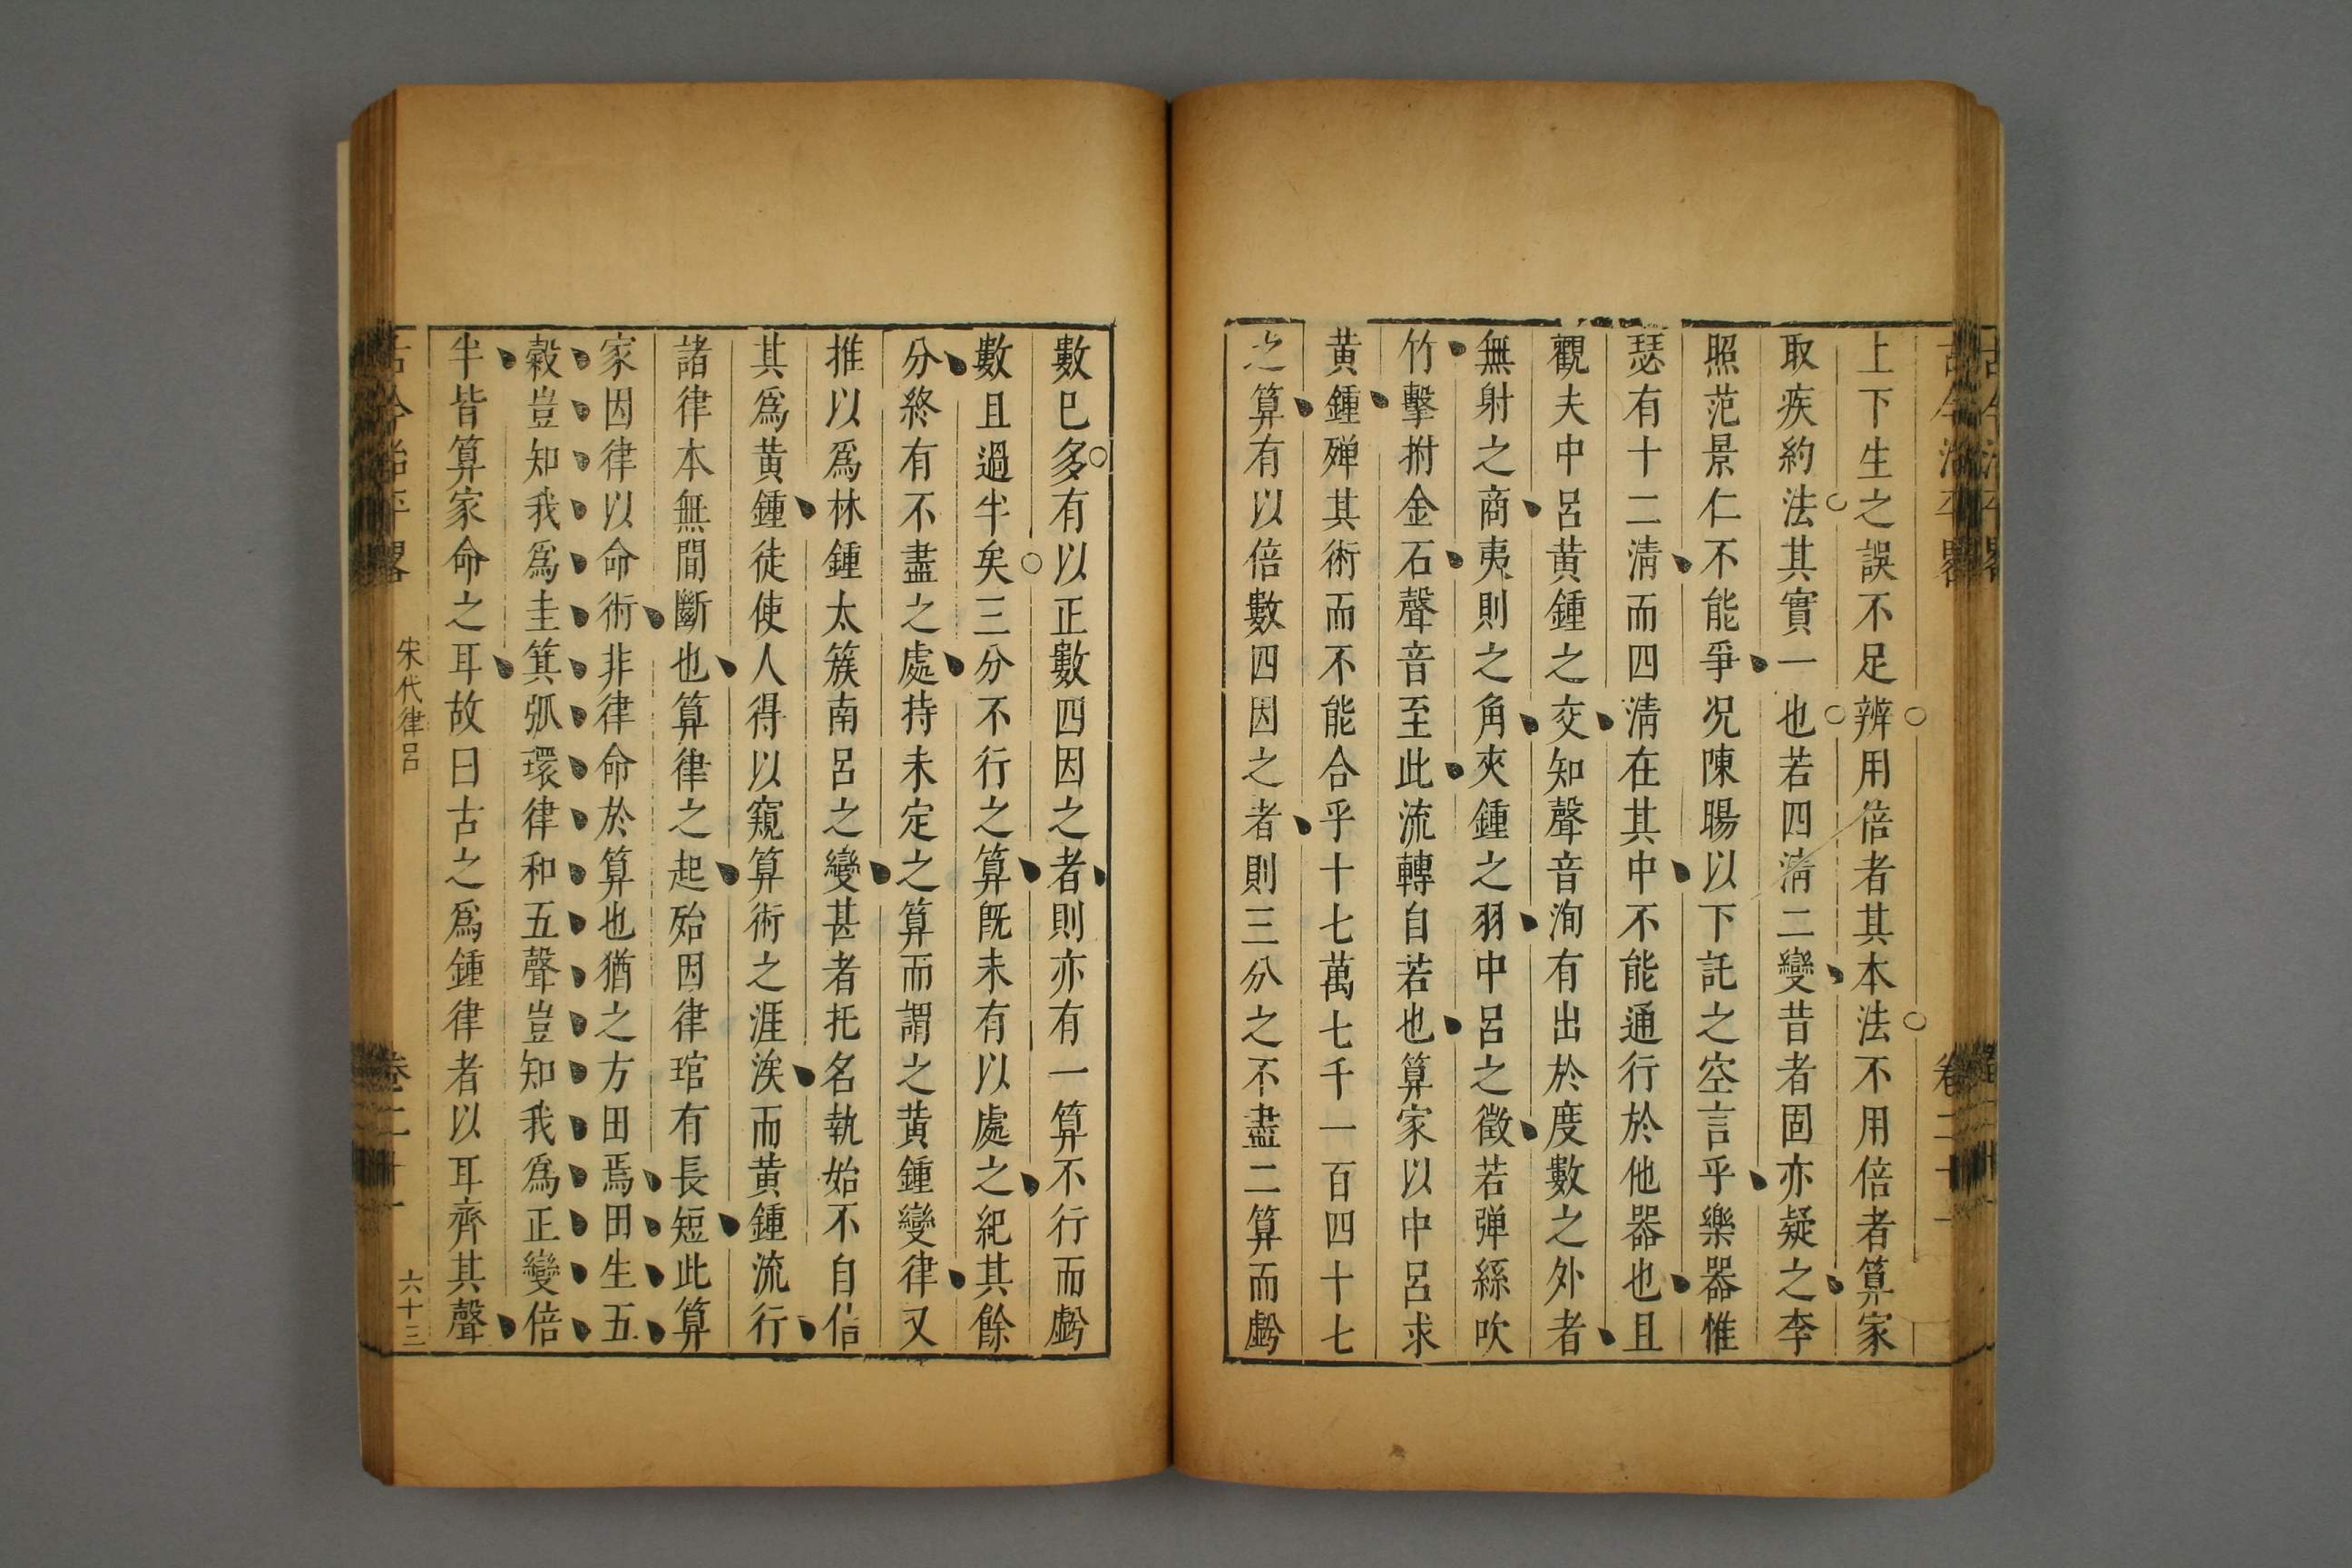 上下生之誤不足辨用倍者其本法不用倍者算家
取疾約法其實一也若四淸二變昔者固亦疑之李
照范景仁不能爭况陳暘以下託之空言乎樂器惟
瑟有十二淸而四淸在其中不能通行於他器也且
觀夫中呂黃鍾之交知聲音洵有出於度數之外者
無射之商夷則之角夾鍾之羽中呂之徵若彈絲吹
竹擊拊金石聲音至此流轉自若也算家以中呂求
黃鍾殫其術而不能合乎十七萬七千一百四十七
之算有以倍數四因之者則三分之不盡二算而虧
數巳多有以正數四因之者則亦有一算不行而虧
數且過半矣三分不行之算旣未有以處之紀其餘
分終有不盡之處持未定之算而謂之黃鍾變律又
推以爲林鍾太簇南呂之變甚者托名執始不自信
其爲黃鍾徒使人得以窺算術之涯涘而黃鍾流行
諸律本無間斷也算律之起殆因律琯有長短此算
家因律以命術非律命於算也猶之方田焉田生五
穀豈知我爲圭箕弧環律和五聲豈知我爲正變倍
半皆算家命之耳故曰古之爲鍾律者以耳齊其聲
宋代律呂
六十三